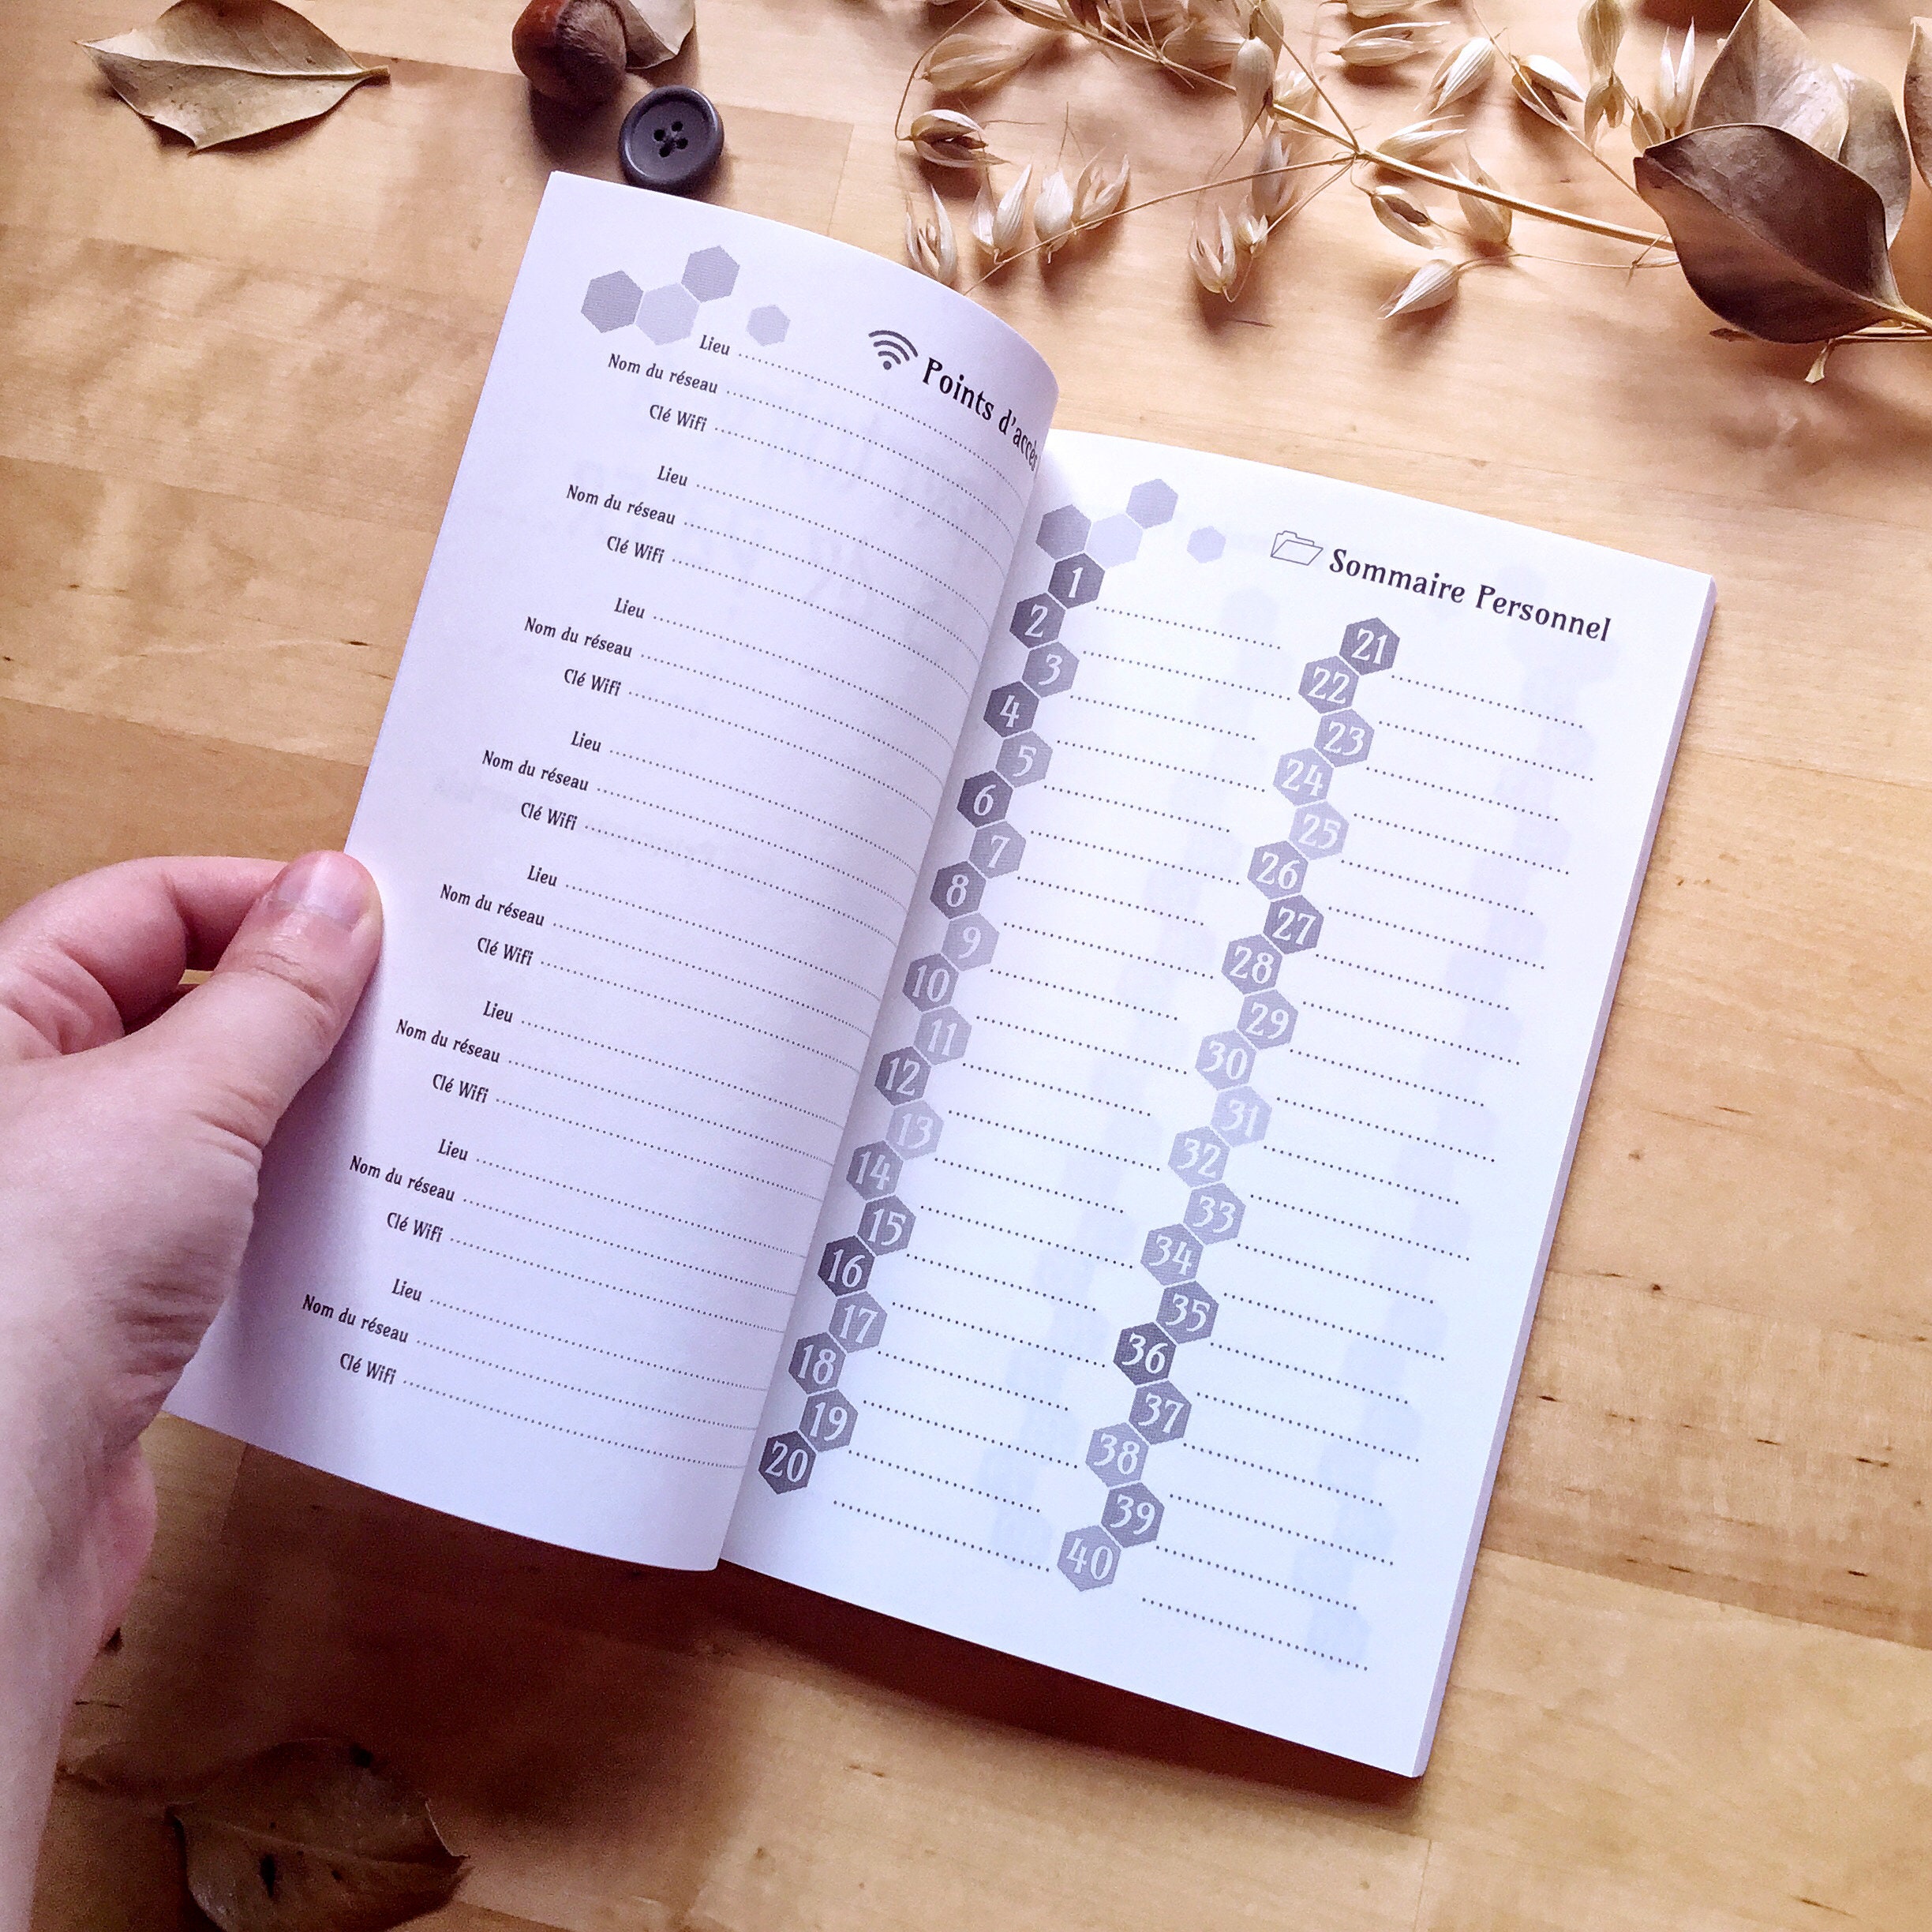 Points d'accès
Lieu
Nom du réseau
Clé Wifi
Lieu
Nom du réseau
Clé Wifi
Lieu
Nom du réseau
Clé Wifi
Lieu
Nom du réseau
Clé Wifi
Lieu
Nom du réseau
Clé Wifi
Lieu
Nom du réseau
Clé Wifi
Lieu
Nom du réseau
Clé Wifi
Lieu
Nom du réseau
Clé Wifi
Sommaire Personnel
1
2
3
4
5
6
7
8
9
10
11
12
13
14
15
16
17
18
19
20
21
22
23
24
25
26
27
28
29
30
31
32
33
34
35
36
37
38
39
40